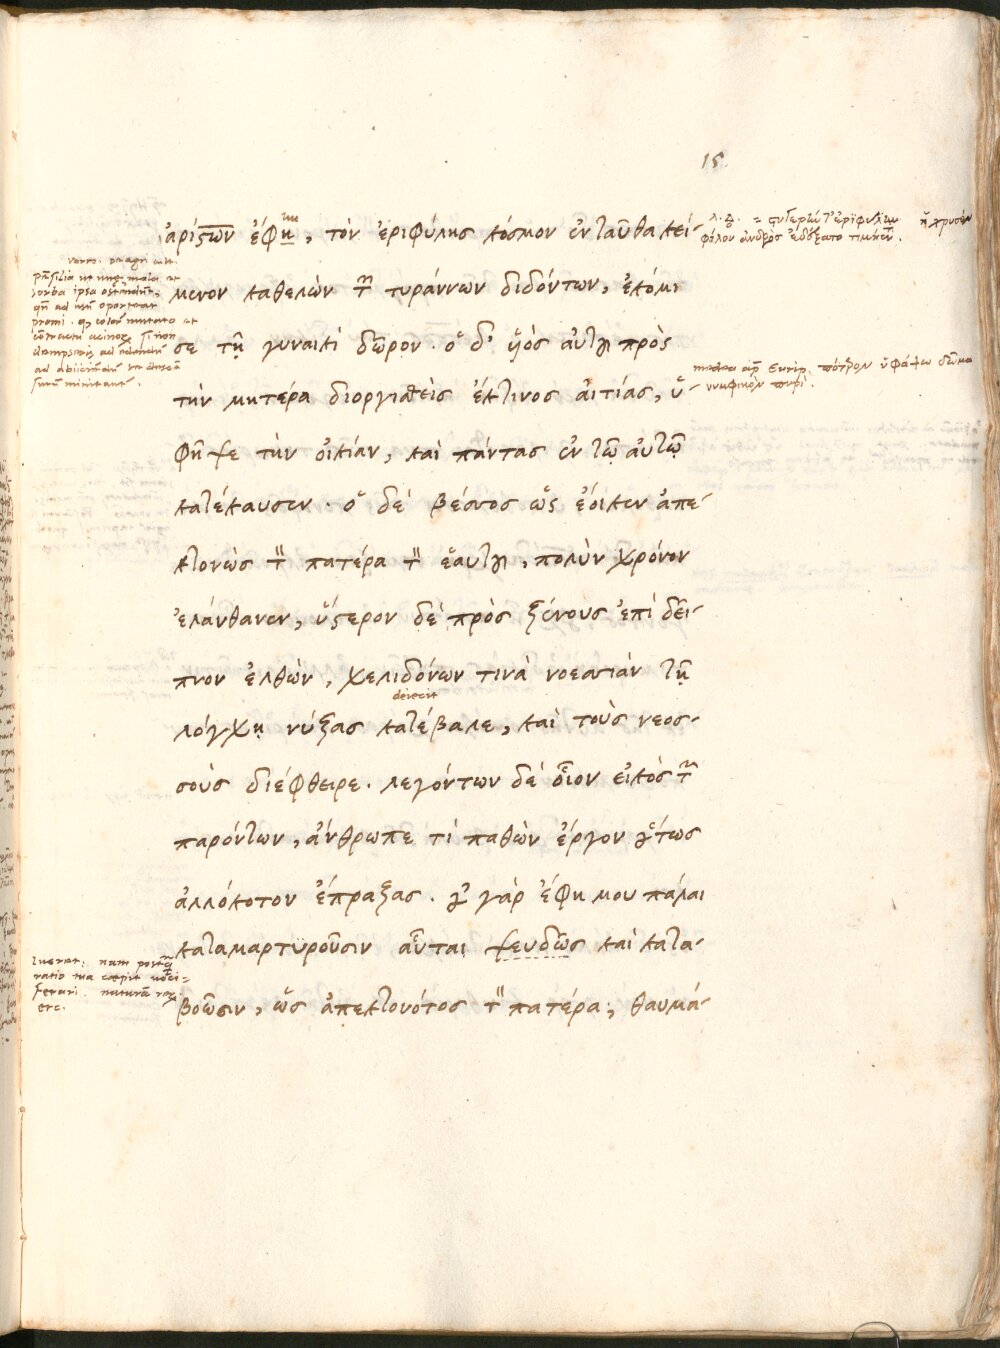 15
ἀρίστων ἐφῆκε, τὸν ἐριφύλης κόσμον ἐνταῦθα κεί-
μενον καθελὼν τῶν τυράννων διδόντων, ἐκόμι
σε τῇ γυναικὶ δῶρον. ὁ δ' ὑὸς αὐτοῦ πρὸς
τὴν μητέρα διοργισθεὶς ἔκτινος αἰτίας, ὑ-
φῆψε τὴν οἰκίαν, καὶ πάντας ἐν τῷ αὐτῷ
κατέκαυσεν. ὁ δὲ βέσσος ὡς ἔοικεν ἀπε-
κτονὼς τὸν πατέρα τὸν ἑαυτοῦ, πολὺν χρόνον
ἐλάνθανεν, ὕστερον δὲ πρὸς ξένους ἐπὶ δεῖ-
πνον ἐλθὼν, χελιδόνων τινὰ νοσσιὰν τῇ
deiecit
λόγχῃ νύξας κατέβαλε, καὶ τοὺς νεοσ-
σοὺς διέφθειρε. λεγόντων δὲ οἷον εἰκὸς τῶν
παρόντων, ἄνθρωπε τί παθὼν ἔργον οὕτως
ἀλλόκοτον ἔπραξας. οὐ γὰρ ἔφη μου πάλαι
καταμαρτυροῦσιν αὗται ψευδῶς καὶ κατα-
βοῶσιν, ὡς ἀπεκτονότος τὸν πατέρα; θαυμά-
ἐριφύλην
φίλου ἀνδρὸς ἐδέξατο τιμήεντα.
Eurip. ὑφάψω δῶμα
νυμφικὸν πυρί.
sorba ipsa
ad oporteat
promi. mutato et
ad
Lucret. nam
ratio tua coepit
ferari. naturam
etc.